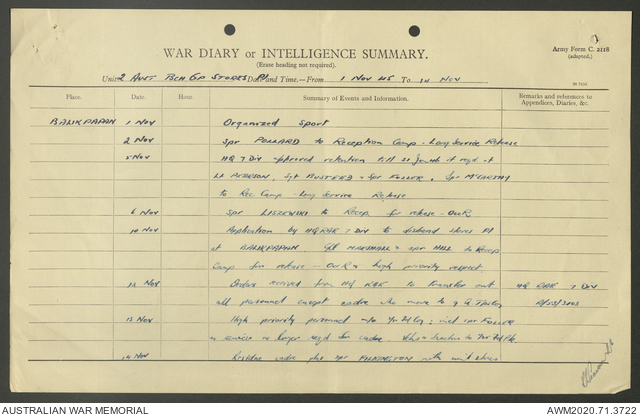 2
WAR DIARY or INTELLIGENCE SUMMARY.
Army Form C. 2118
(adapted.)
(Erase heading not required).
Unit 2 Aust Bch Gp Stores Pl Date and Time.—From 1 Nov 45 To 14 Nov
Place. Date. Hour. Summary of Events and Information. Remarks and references to
Appendices, Diaries, &c.
BALIKPAPAN 1 Nov Organized Sport
2 Nov Spr POLLARD to Reception Camp - Long Service Release
5 Nov HQ 7 Div approved retention till if reqd of
Lt PEDERSON, Sgt & Spr FULLER. Spr McCARTHY
to Rec Camp - Long Service Release
6 Nov Spr LISZEWSKI to Recep for release -
10 Nov Application by HQ RAE 7 Div to disband Stores Pl
at BALIKPAPAN Cpl MARSHALL & Spr HILL to Recep
Camp for release - & high priority respect.
12 Nov Orders received from HQ RAE to transfer out HQ RAE 7 Div
all personnel except cadre who move to
13 Nov High priority personnel m/o to Fd Coy; incl Spr FULLER
as service no longer reqd for cadre.
14 Nov Residue cadre plus Spr PILKINGTON with unit stores
AUSTRALIAN WAR MEMORIAL
AWM2020.71.3722